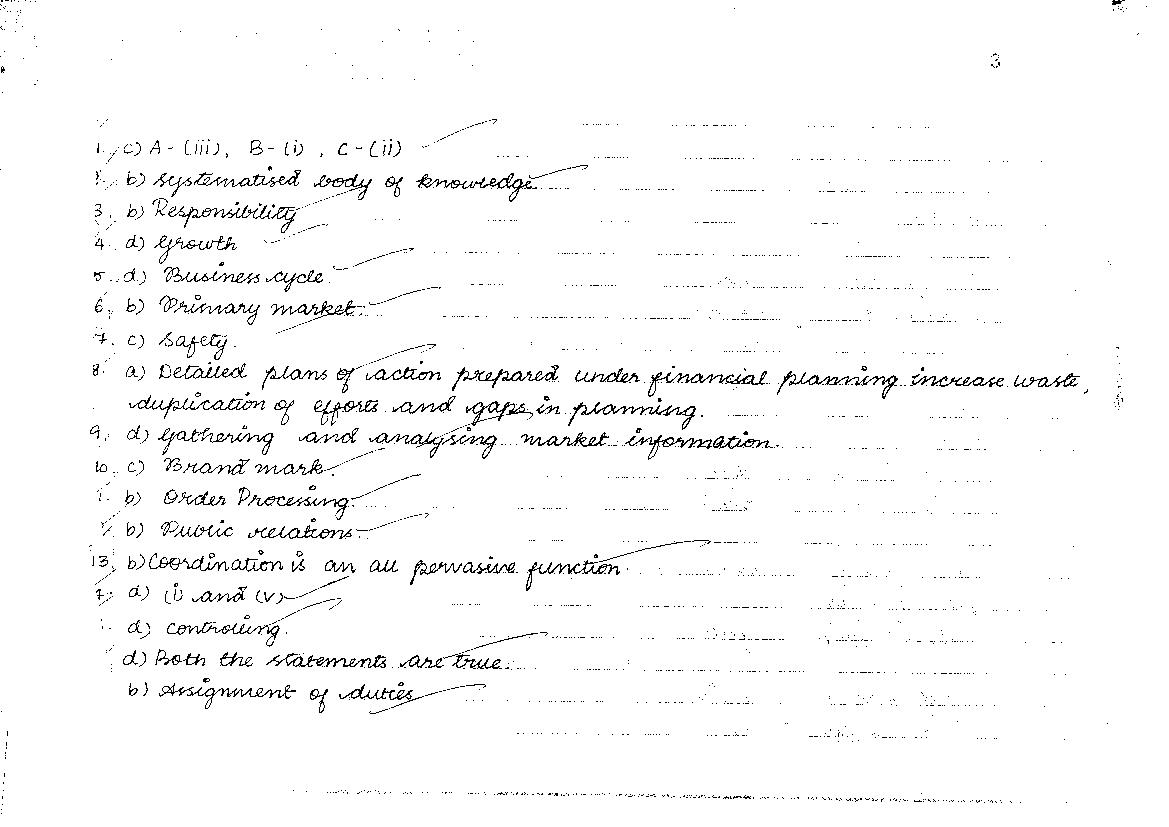 3
1. c) A - (iii), B - (i), C - (ii)
b) Systematised body of knowledge
3. b) Responsibility
4. d) Growth
5. d) Business cycle
6. b) Primary market.
7. c) Safety.
8. a) Detailed plans of action prepared under financial planning increase waste,
duplication of efforts and gaps in planning.
9. d) Gathering and analysing market information
10. c) Brand mark.
b) Order Processing.
b) Public relations
13. b) Coordination is an all pervasive function
d) (i) and (v)
d) Controlling.
d) Both the statements are true.
b) Assignment of duties